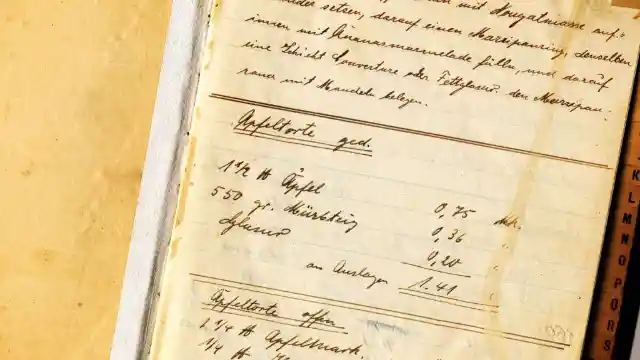 mit Nougatmasse auf=
setzen, darauf einen Marzipanring, denselben
innen mit Ananasmarmelade füllen, und darauf
eine Schicht Couverture oder Fettglasur. den Marzipan=
rand mit Mandeln belegen.
Äpfeltorte ged.
1 1/2 ℔ Äpfel 0,75 Mk.
550 gr. Mürbteig 0,36 "
Glasur 0,20 "
an Auslagen 1.41 "
Äpfeltorte offen
2 1/4 ℔ Apfelmark.
1/4 ℔
K
L
M
N
O
P
Q
R
S